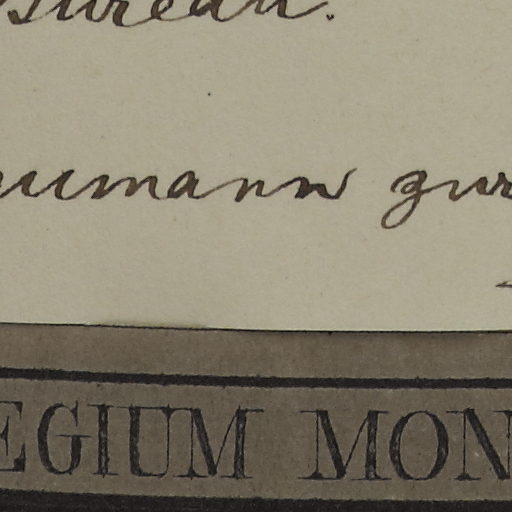 Bureau.
umann zur
EGIUM MON